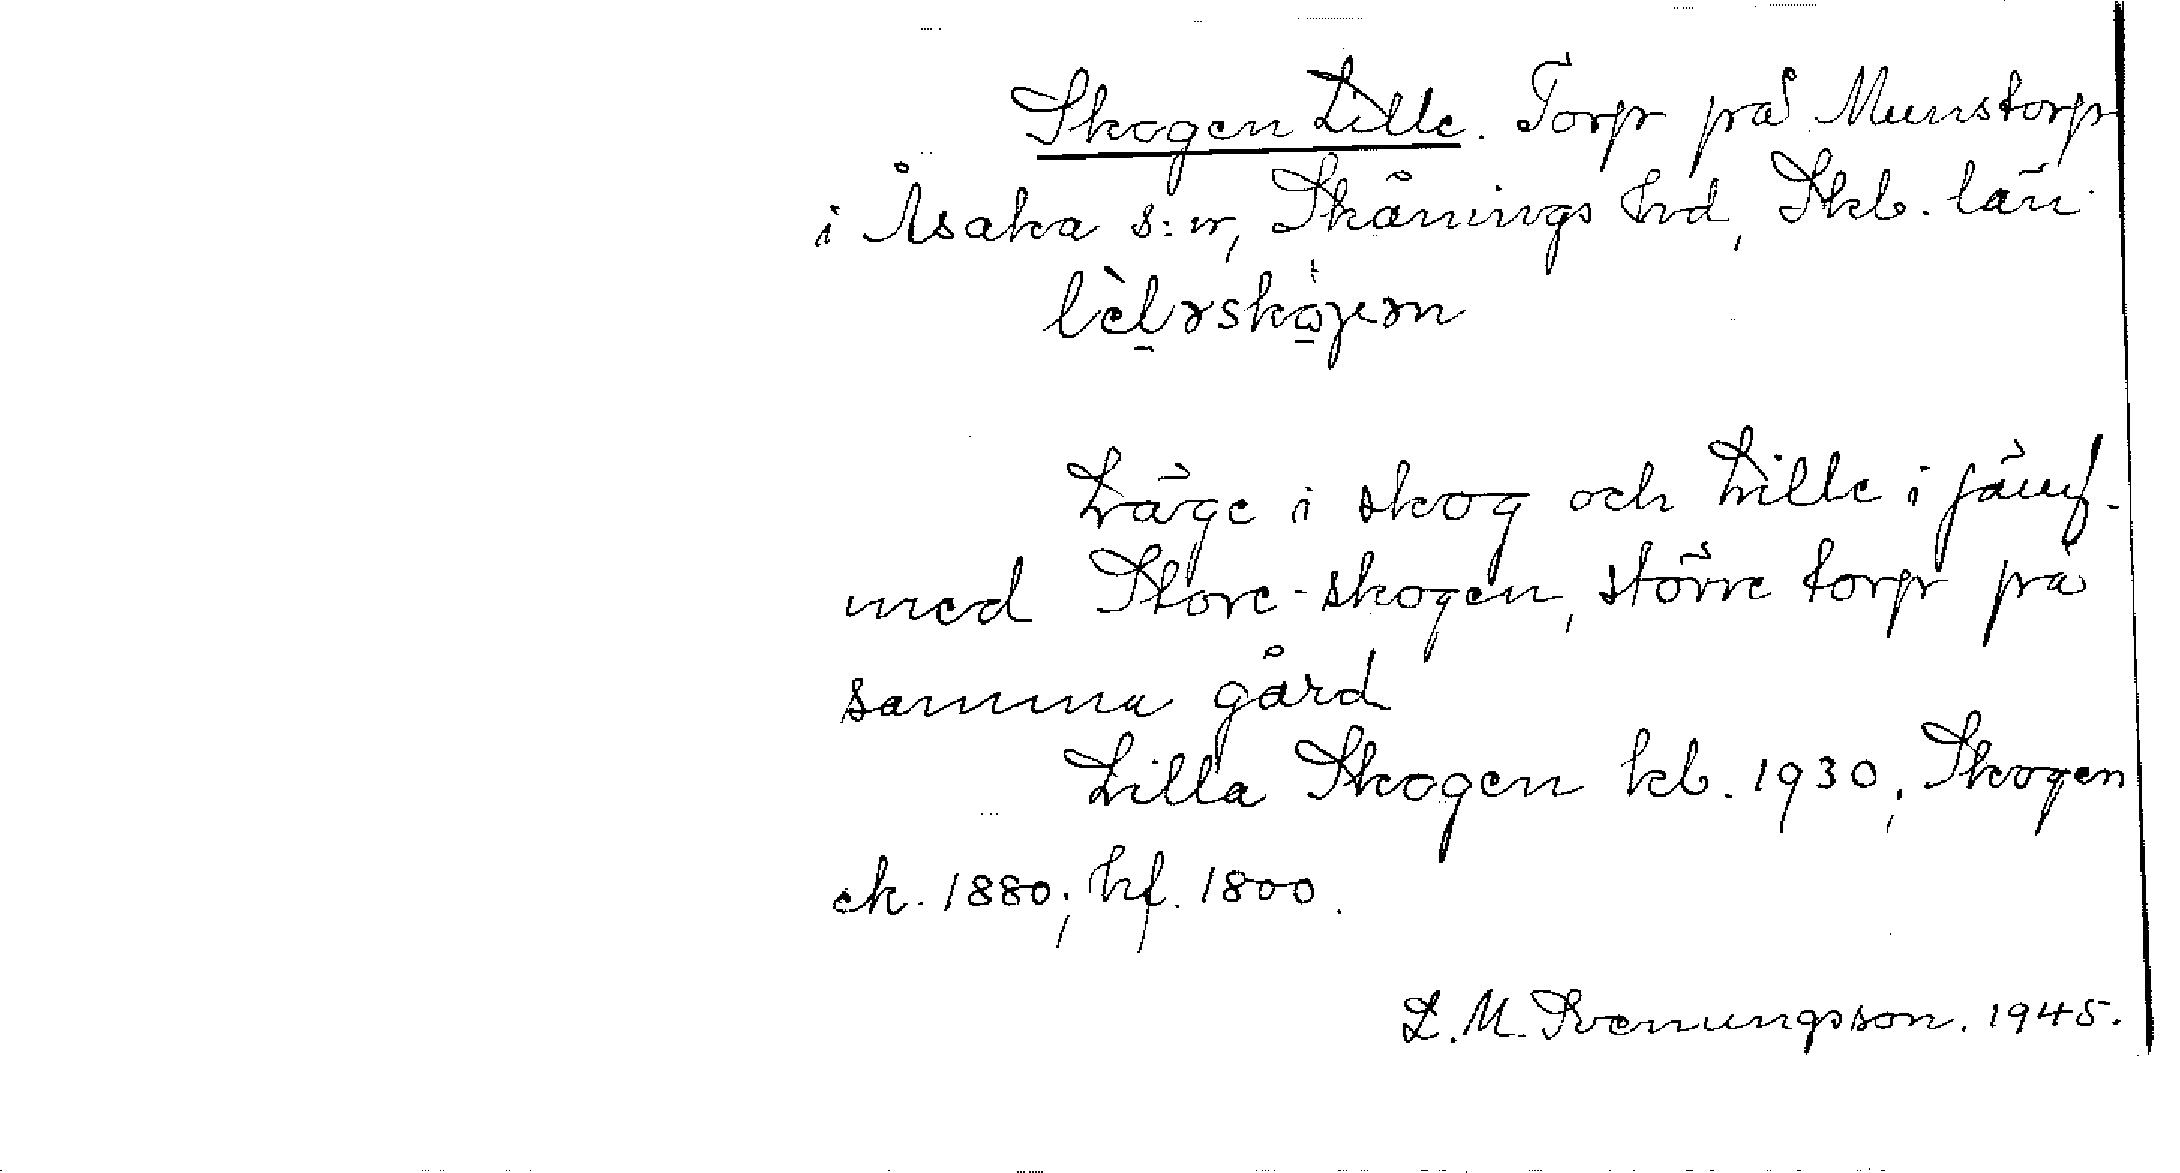 Skogen Lille. Torp på Munstorp
i Åsaka s:n, Skånings hd, Skb. län
Läge i skog och Lille i jämf.
med Store-skogen, större torp på
samma gård
Lilla Skogen kb. 1930; Skogen
ek. 1880; hf. 1800.
L. M. Svenungsson. 1945.